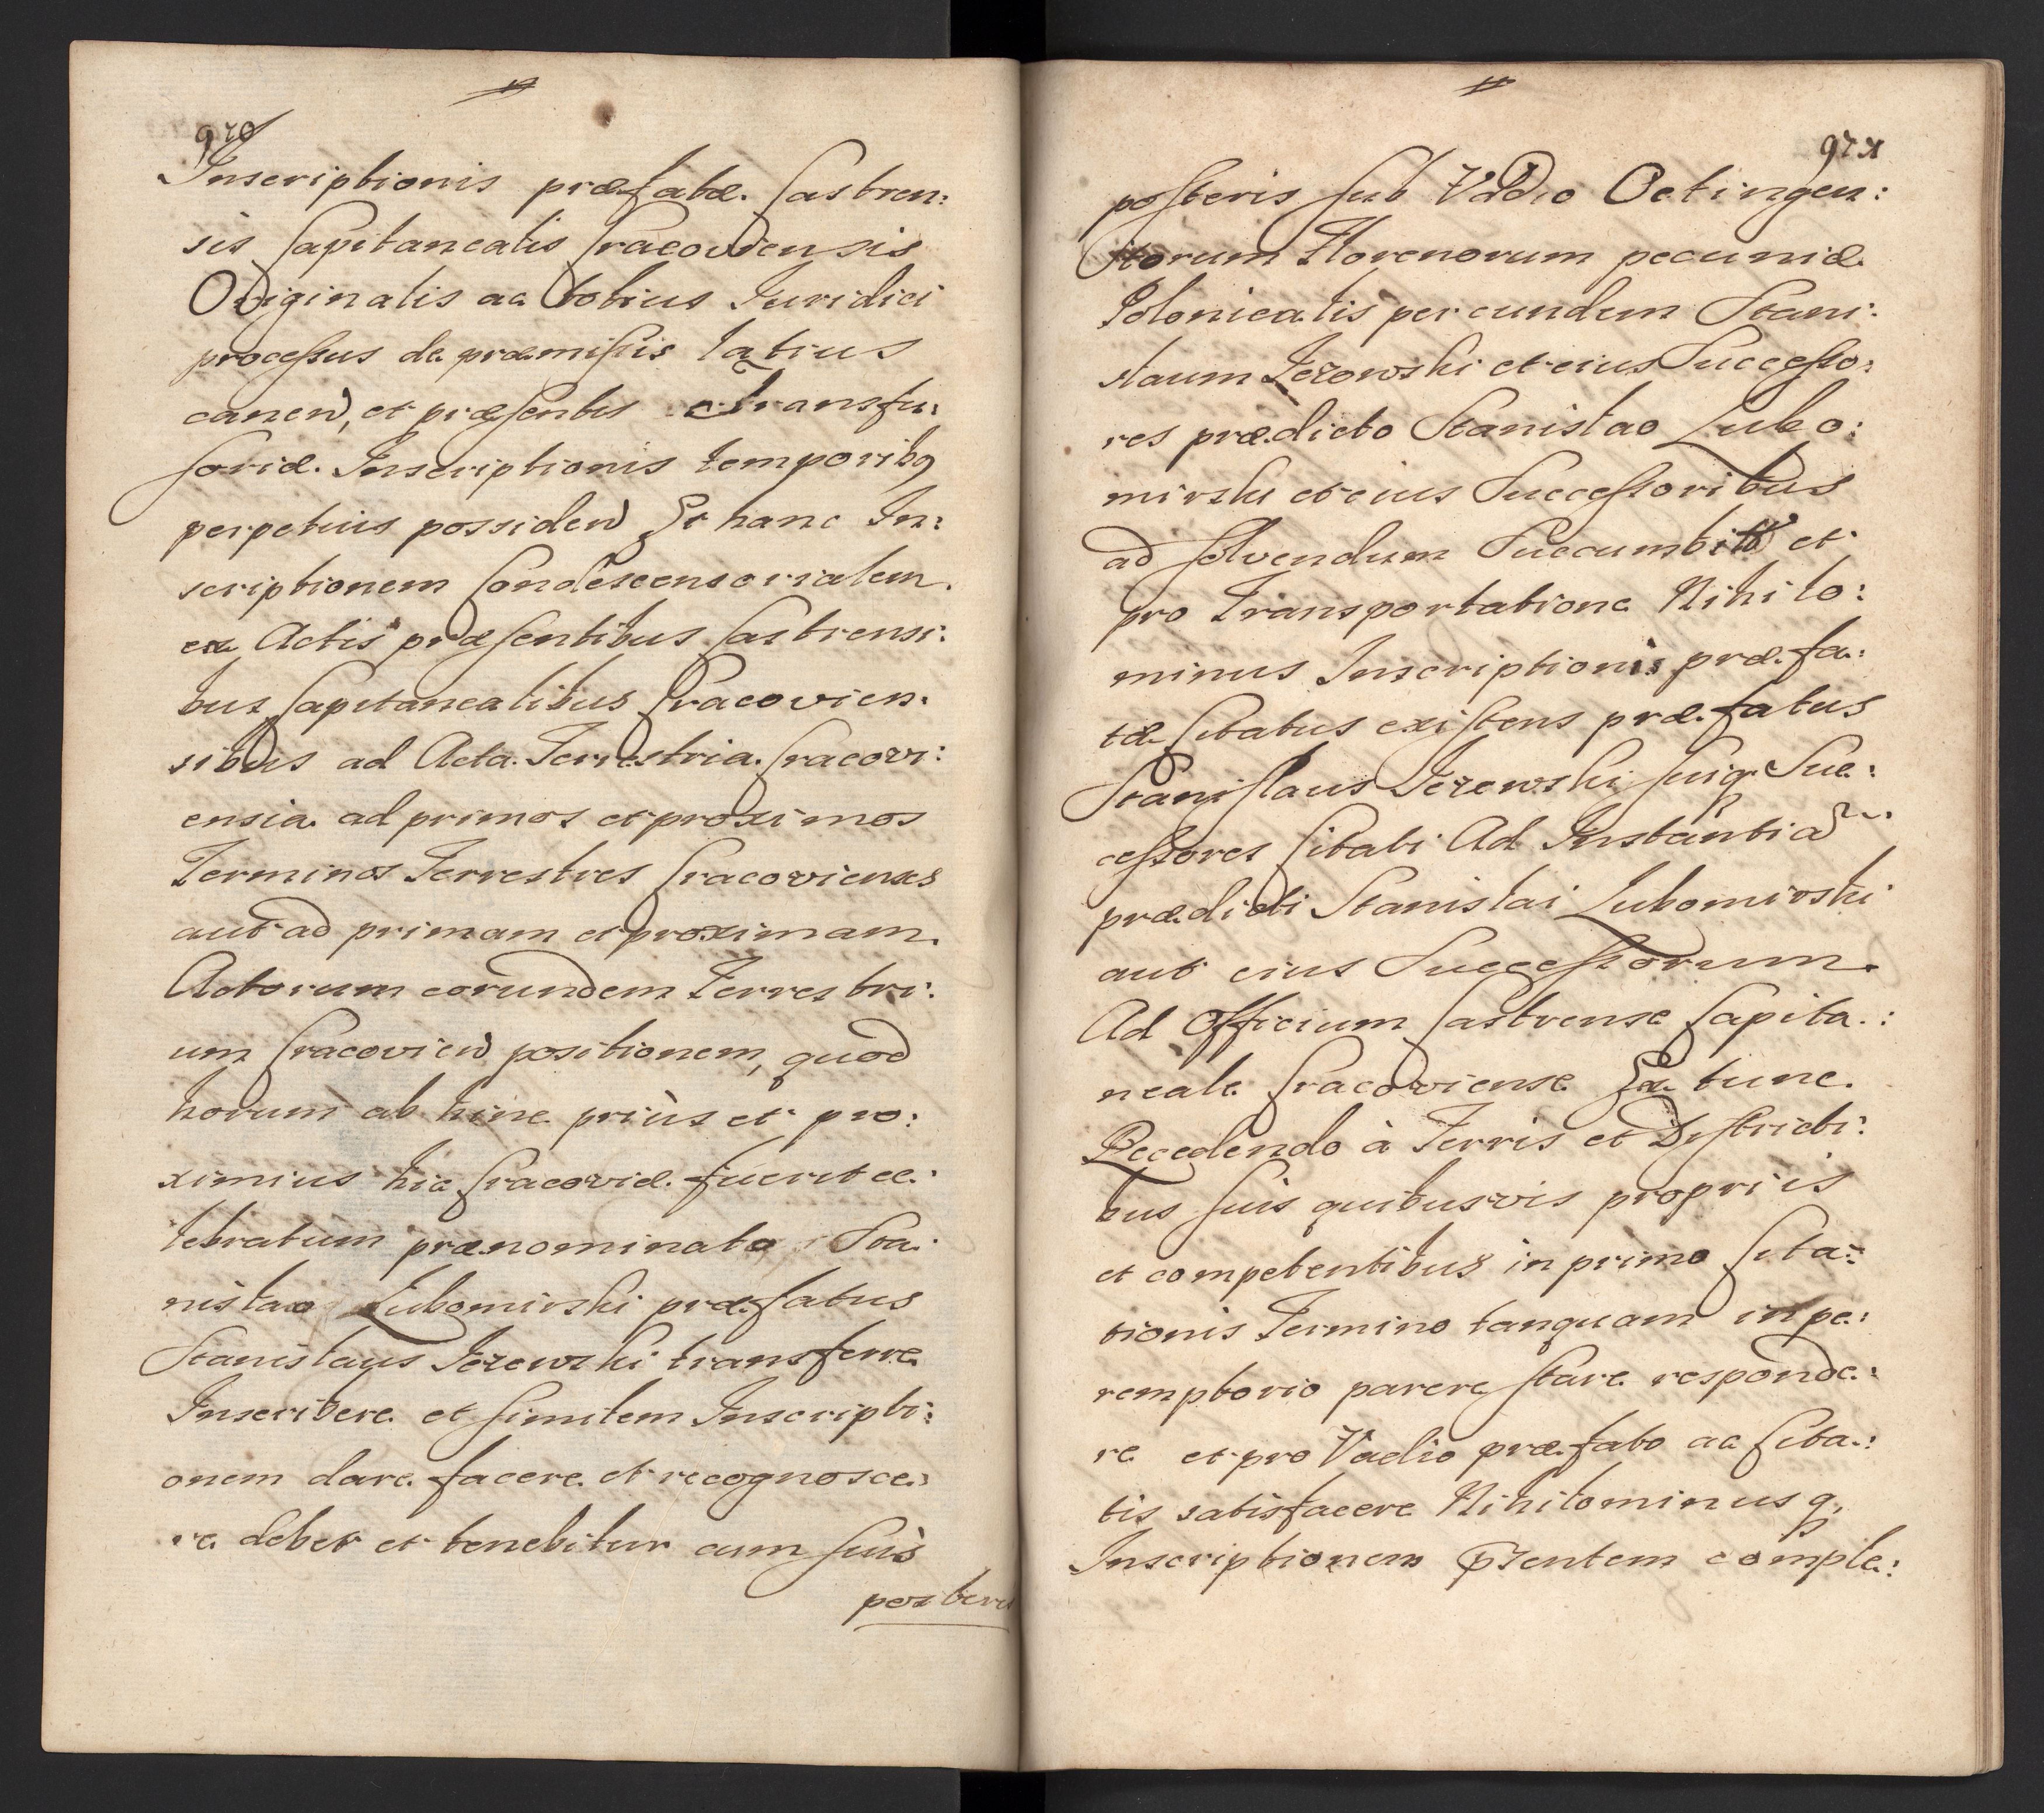 970
Inscriptionis præfatæ Castren:
sis Capitanealis Cracoviensis
Originalis ac totius Juridici
processus de præmissis latius
canen, et præsentis transfu:
soriæ Inscriptionis temporibq
perpetuis possiden Et hanc In:
scriptionem Condescensorialem
ex Actis præsentibus Castrensi:
bus Capitanealibus Cracovien:
sibus ad Acta Terrestria Cracovi:
ensia ad primos et proximos
Terminos Terrestres Cracovienses
aut ad primam et proximam
Actorum eorundem Terrestri:
um Cracovien positionem, quod
horum ab hinc priùs et pro:
ximius hic Cracoviæ fuerit ce:
lebratum prænominato Sta:
nislao Lubomirski præfatus
Stanislaus Jezewski transferre
Inscribere et similem Inscripti:
onem dare facere et recognosce:
re debet et tenebitur cum suis
posteris
971
posteris sub Vadio Octingen:
torum Florenorum pecuniæ
Polonicalis per eundem Stani:
slaum Jezowski et eius Successo:
res prædicto Stanislao Lubo:
mirski et eius Successoribus
ad solvendum Succumbitt et
pro Transportatione Nihilo:
minus Inscriptionis præfa:
tæ Citatus existens præfatus
Stanislaus Jezewski suiq Suc:
cessores Citati Ad Instantia
prædicti Stanislai Lubomirski
aut eius Successorum
Ad Officium Castrense Capita:
neale Cracoviense Ex tunc
Recedendo à Terris et Districti:
bus suis quibusvis propriis
et competentibus in primo Cita:
tionis Termino tanquam in pe:
remptorio parere stare responde:
re et pro Vadio præfato ac Cita:
tis satisfacere Nihilominusq
Inscriptionem pzentem comple: